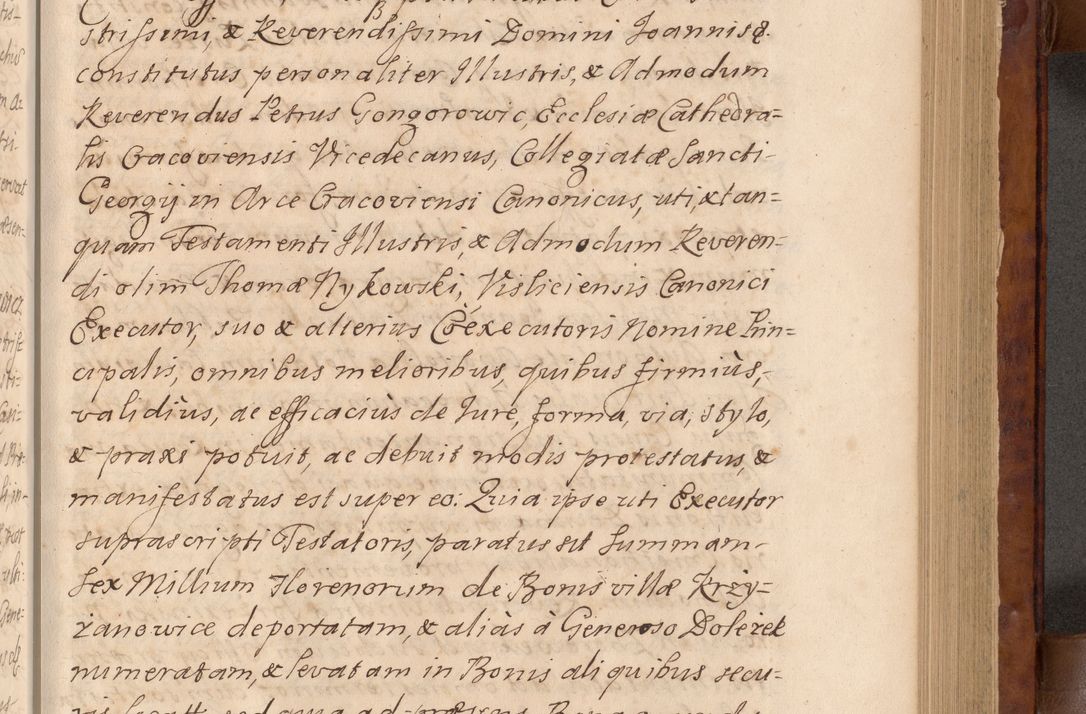 strissimi, & Reverendissimi Domini Joannis &.
constitutus personaliter Illustris, & Admodum
Reverendus Petrus Gongorowic, Ecclesiæ Cathedra=
lis Cracoviensis Vicedecanus, Collegiatæ Sancti-
Georgij in Arce Cracoviensi Canonicus, uti, & tan=
quam Testamenti Illustris, & Admodum Reveren=
di olim Thomæ Nykowski, Visliciensis Canonici
Executor, suo & alterius Coéxecutoris Nomine Prin=
cipalis, omnibus melioribus, quibus firmiùs,
validiùs, ac efficaciùs de Jure, forma, via, stylo,
& praxi potuit, ac debuit modis protestatus, &
manifestatus est super eo: Quia ipse uti Executor
suprascripti Testatoris, paratus sit Summam
Sex Millium Florenorum de Bonis villæ Krzy=
żanowice deportatam, & aliàs à Generoso Doleżek
numeratam, & levatam in Bonis aliquibus secu=